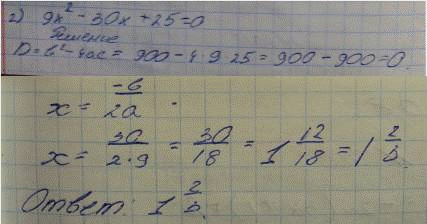 2) 9x² - 30x + 25 = 0
Решение
D = b² - 4ac = 900 - 4·9·25 = 900 - 900 = 0.
x = -b/2a.
x = 30/2·9 = 30/18 = 1 12/18 = 1 2/3
Ответ: 1 2/3.